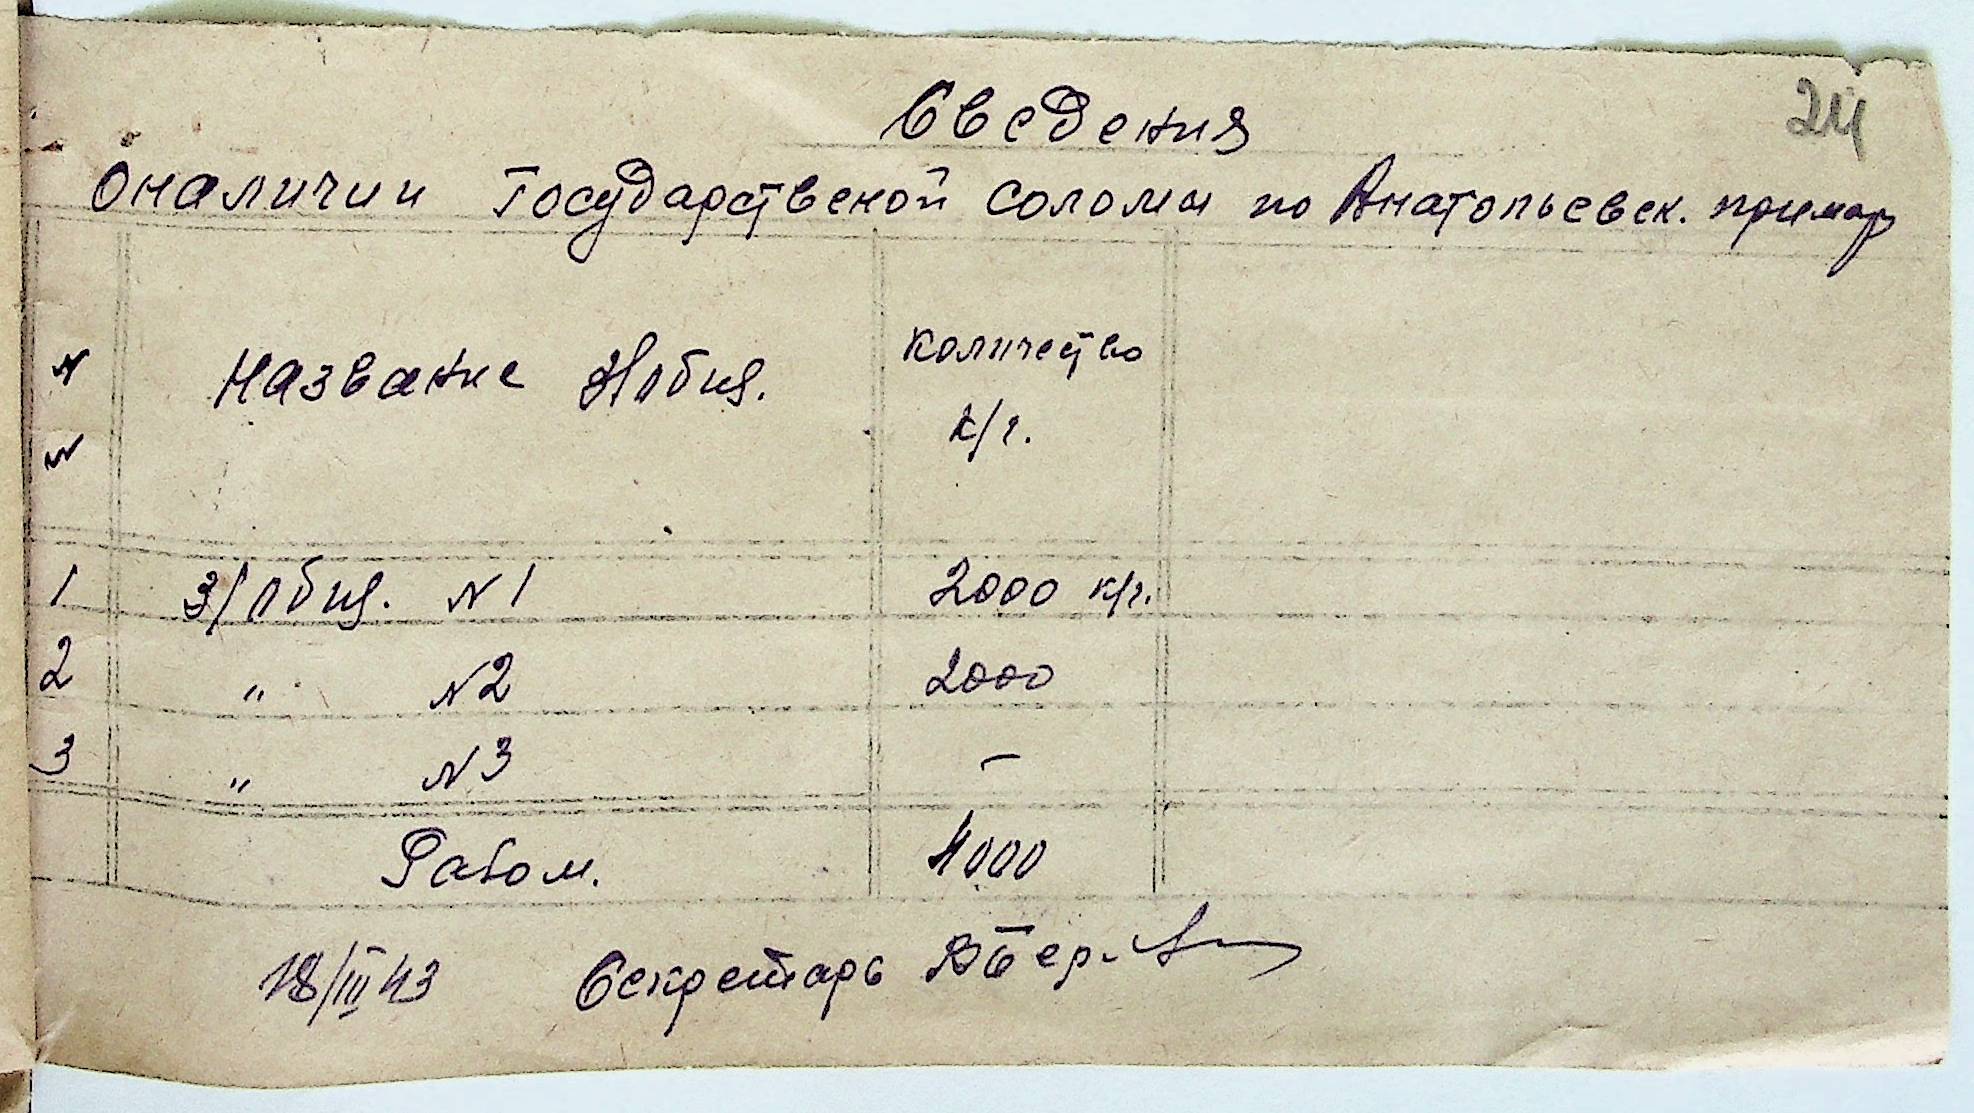 24
Сведения
О наличии Государственой соломы по Анатольевск. примар
№ Название З/общ. количество
№ к/г.
1 З/общ. N1 2000 к/г.
2 " N2 2000
3 " N3 –
Разом. 4000
18/III 43 Секретарь